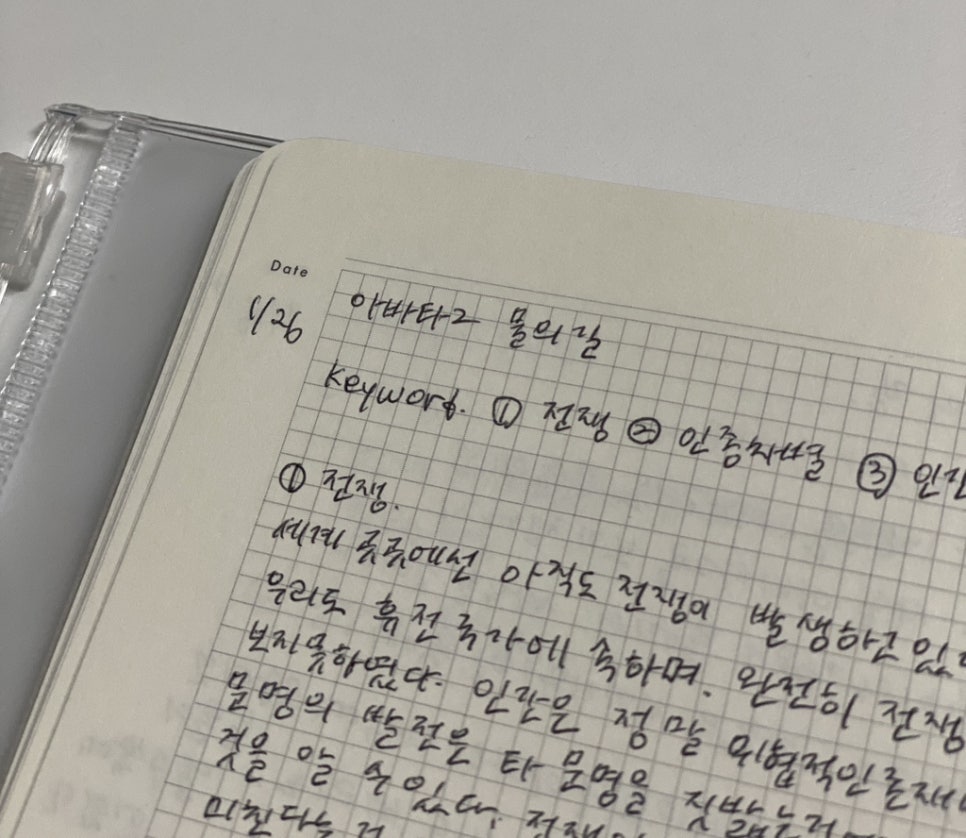 Date
1/26
아바타2 물의 길
keyword. ① 전쟁 ② 인종차별 ③ 인간
① 전쟁.
세계 곳곳에선 아직도 전쟁이 발생하고 있
우리도 휴전 국가에 속하며. 완전히 전쟁
보지 못하였다. 인간은 정말 위협적인 존재
문명의 발전은 타 문명을 짓밟는
것을 알 수 있다.
미친다는